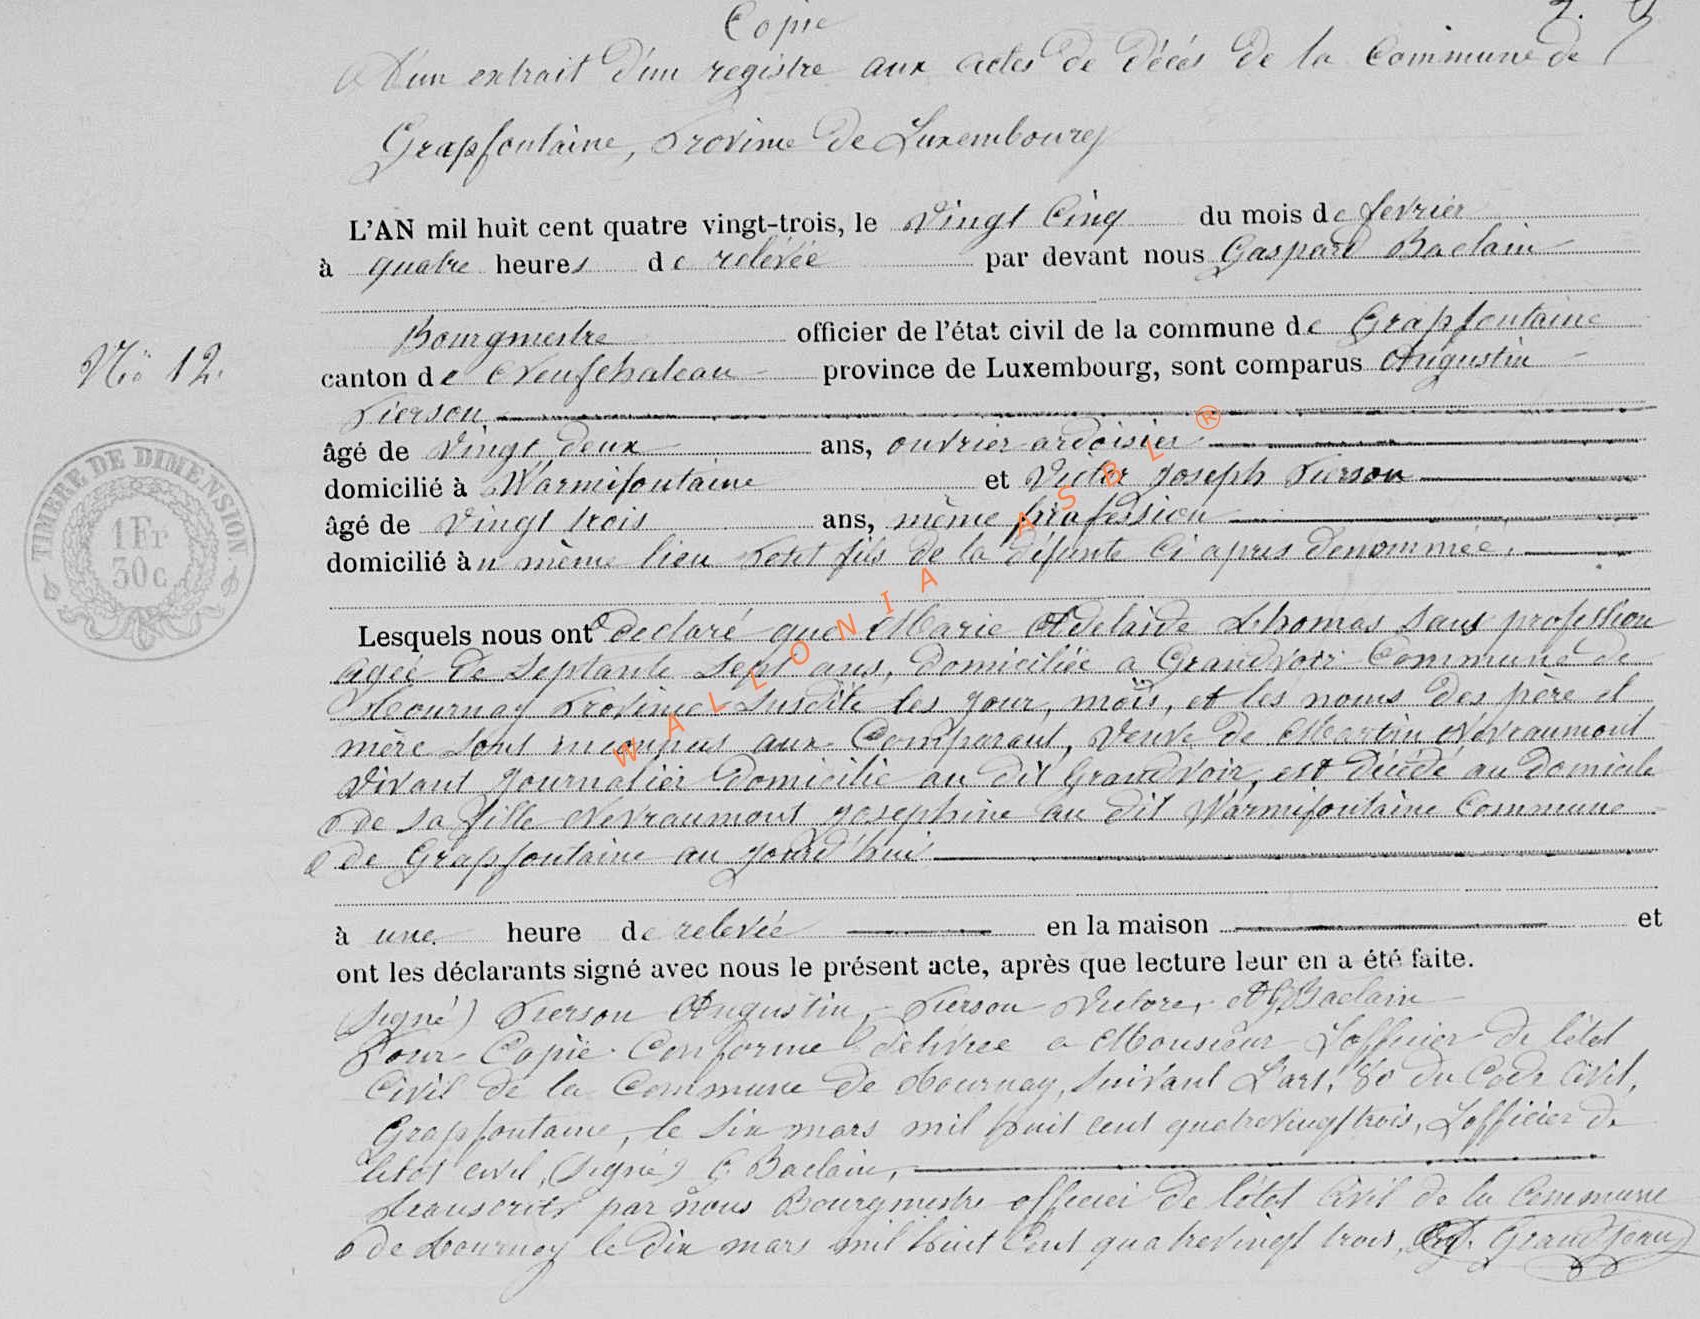 Copie
D'un extrait d'un registre aux actes de décés de la Commune de
Grapfontaine, Province de Luxembourg
L'AN mil huit cent quatre vingt-trois, le vingt cinq du mois de fevrier
à quatre heures de relévée par devant nous Gaspard Baclain
Bourgmestre officier de l'état civil de la commune de Grapfontaine
No 12.
canton de Neufchateau province de Luxembourg, sont comparus Augustin
Pierson
âgé de vingt deux ans, ouvrier ardoisier
domicilié à Warmifontaine et Victor Joseph Pierson
âgé de vingt trois ans, même profession
domicilié à même lieu petit fils de la défunte ci apres denommée,
TIMBRE DE DIMENSION
1 Fr
30c
Lesquels nous ont declaré que Marie Adelaide Thomas sans profession
agée de septante sept ans, domiciliée a Grandvoir Commune de
Tournay Province susdite les jour, mois, et les noms des père et
mère sont inconnus aux Comparant, veuve de Martin Nevraumont
vivant journalier domicilié au dit Grandvoir, est décédé au domicile
de sa fille Nevraumont Josephine au dit Warmifontaine Commune
de Grapfontaine au jourd'hui
à une heure de relevée en la maison et
ont les déclarants signé avec nous le présent acte, après que lecture leur en a été faite.
(Signé) Pierson Augustin, Pierson Victore, Baclain
Pour Copie Conforme délivrée a Monsieur L'officier de l'état
Civil de la Commune de Tournay, suivant L'art. 80 du Code Civil,
Grapfontaine, le six mars mil huit cent quatrevingt trois, L'officier de
l'état civil, (signé) G Baclain,
Transcrits par nous Bourgmestre officier de l'état civil de la Commune
de Tournay le dix mars mil huit Cent quatrevingt trois, Grandjean
WALLONIA ASBL ®